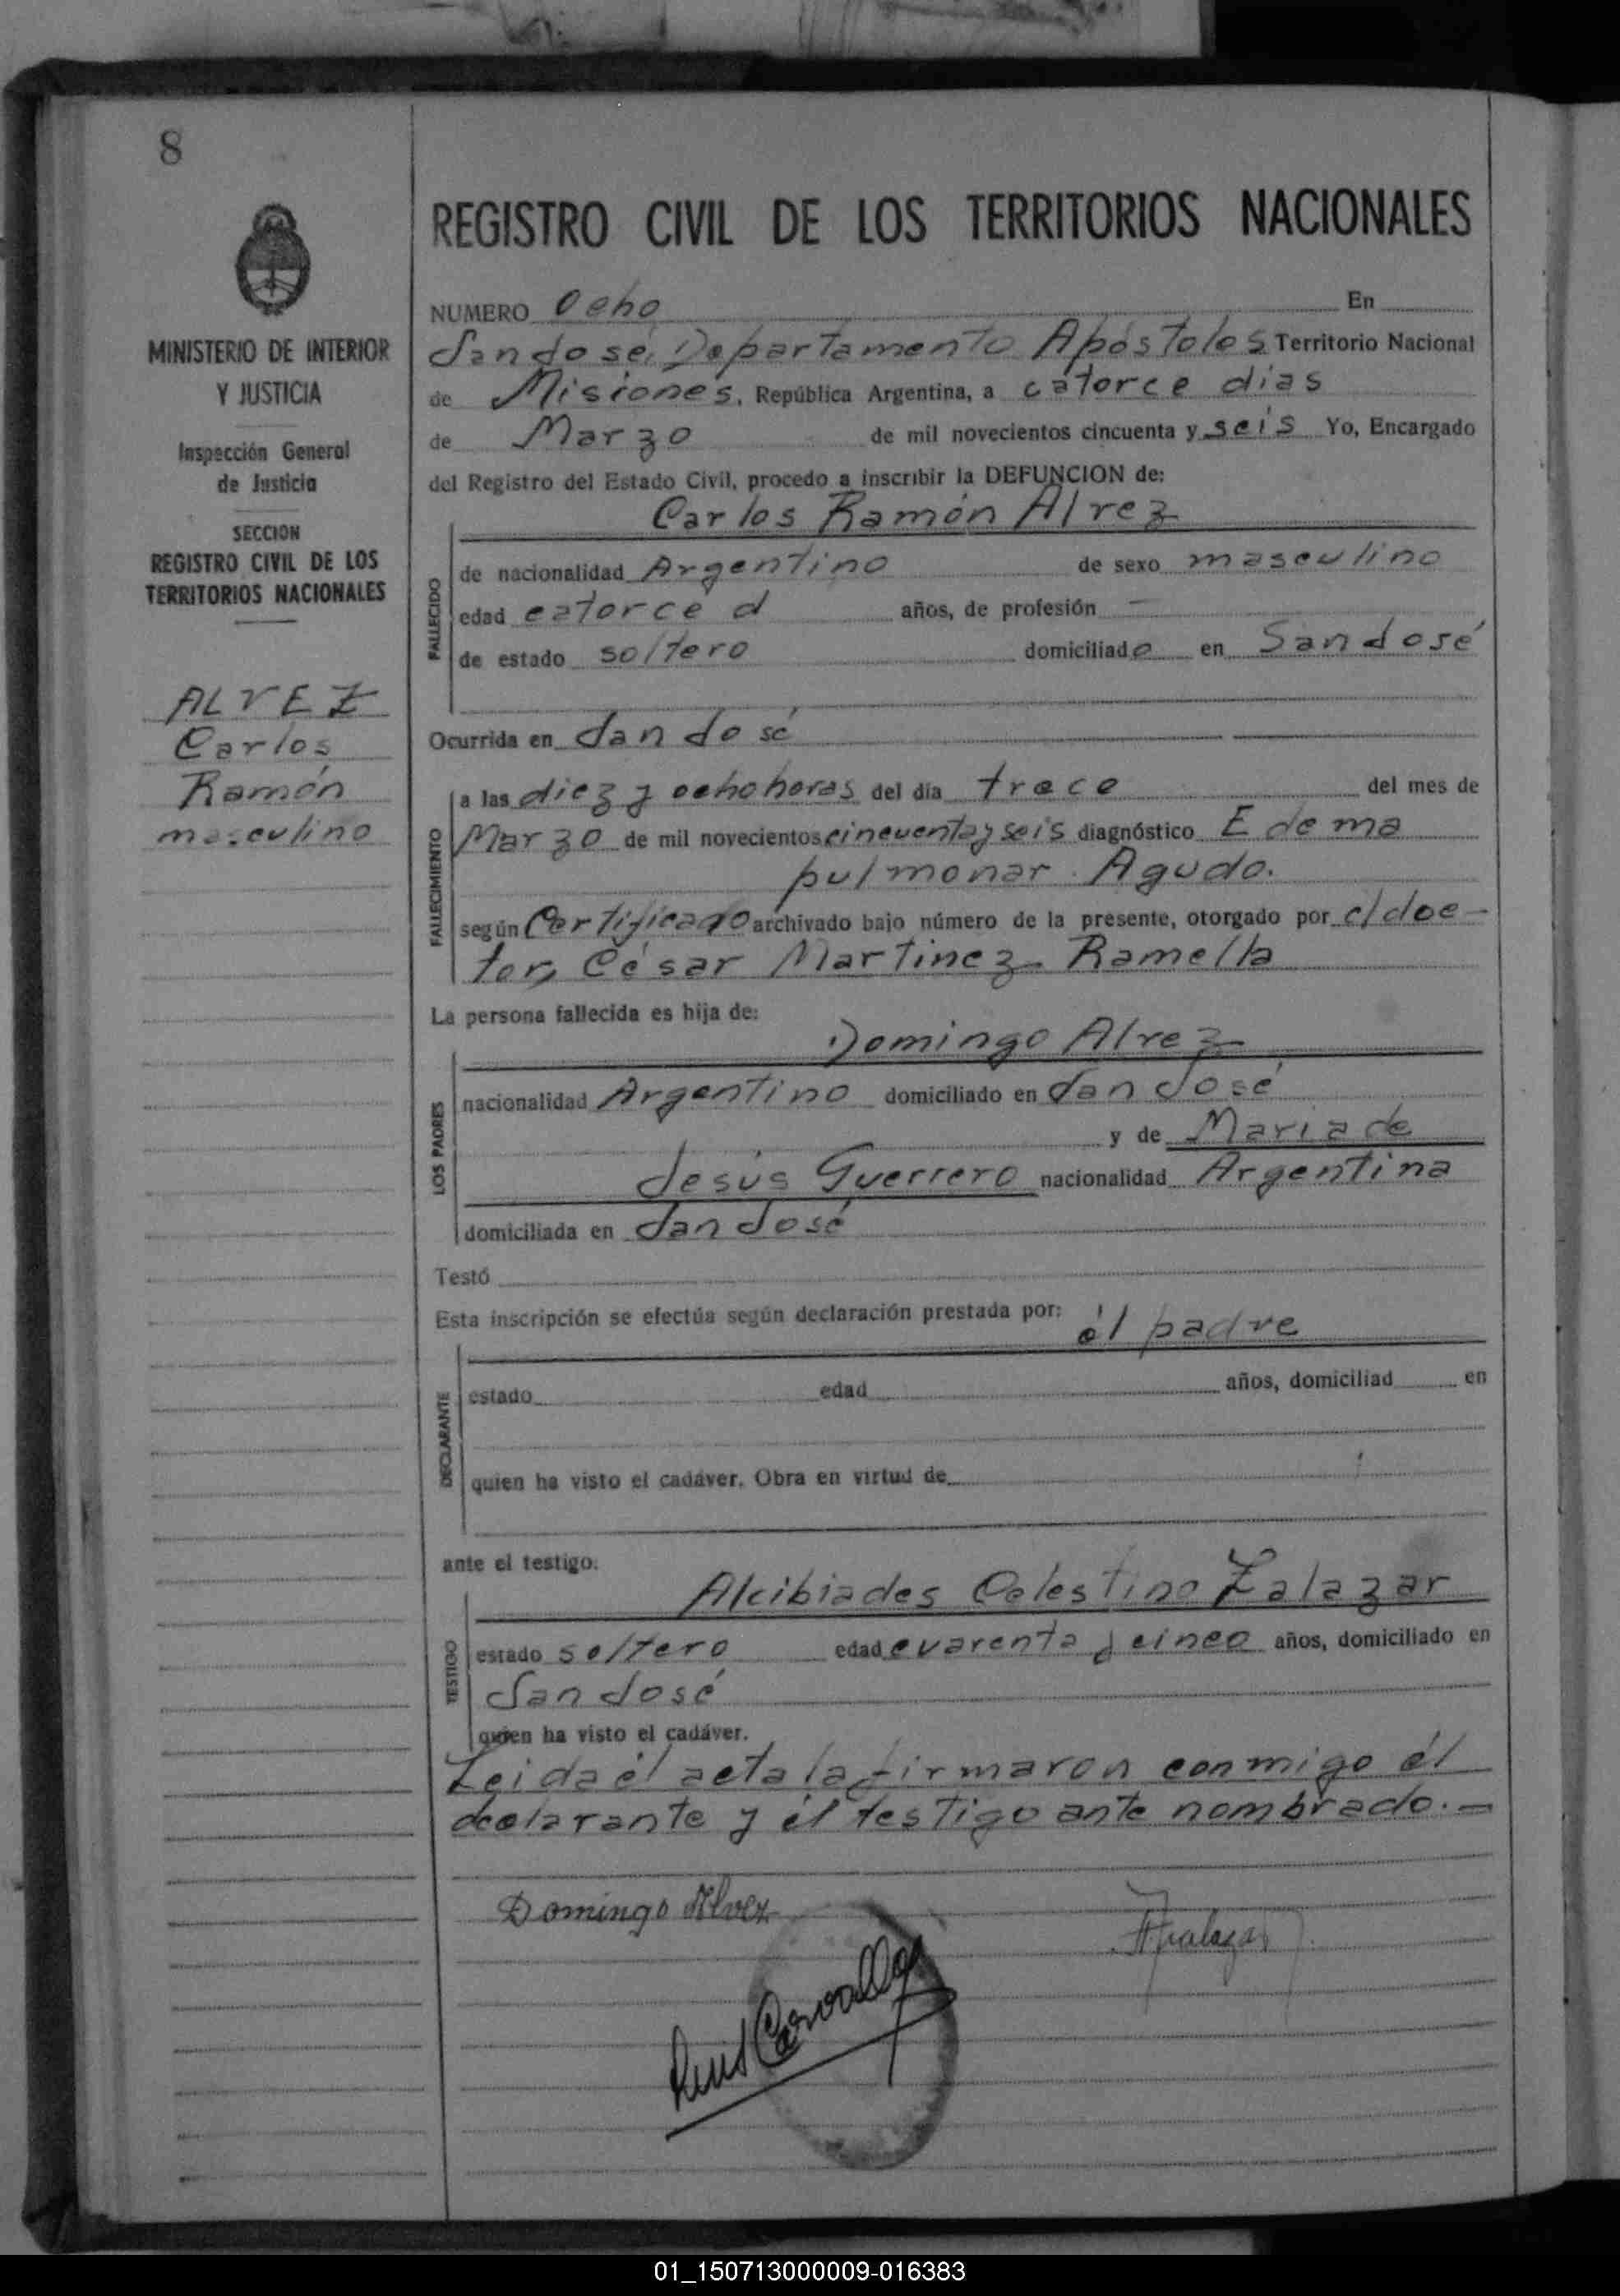 8
REGISTRO CIVIL DE LOS TERRITORIOS NACIONALES
MINISTERIO DE INTERIOR
Y JUSTICIA
Inspección General
de Justicia
SECCION
REGISTRO CIVIL DE LOS
TERRITORIOS NACIONALES
ALVEZ
Carlos
Ramón
masculino
NUMERO Ocho En
San José, Departamento Apóstoles Territorio Nacional
de Misiones, República Argentina, a catorce dias
de Marzo de mil novecientos cincuenta y seis Yo, Encargado
del Registro del Estado Civil, procedo a inscribir la DEFUNCION de:
Carlos Ramón Alvez
FALLECIDO
de nacionalidad Argentino de sexo masculino
edad catorce d años, de profesión —
de estado soltero domiciliado en San José
Ocurrida en San José
FALLECIMIENTO
a las diez y ocho horas del día trece del mes de
Marzo de mil novecientos cincuenta y seis diagnóstico Edema
pulmonar Agudo.
según Certificado archivado bajo número de la presente, otorgado por el doc-
tor, César Martinez Ramella
La persona fallecida es hija de:
Domingo Alvez
LOS PADRES
nacionalidad Argentino domiciliado en San José
y de Maria de
Jesús Guerrero nacionalidad Argentina
domiciliada en San José
Testó
Esta inscripción se efectúa según declaración prestada por: él padre
DECLARANTE
estado edad años, domiciliad en
quien ha visto el cadáver. Obra en virtud de
ante el testigo:
Alcibiades Celestino Zalazar
TESTIGO
estado soltero edad cuarenta y cinco años, domiciliado en
San José
quien ha visto el cadáver.
Leida él acta la firmaron conmigo él
declarante y él testigo ante nombrado.—
Domingo Alvez
01_150713000009-016383